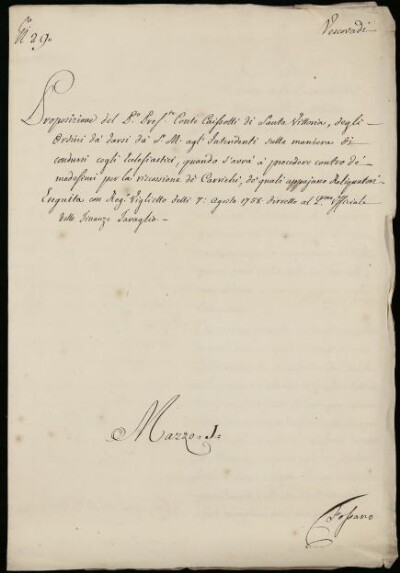 N 29.
Vescovadi
Proposizione del P.mo Pres.te Conte Caissotti di Santa Vittoria, degli
Ordini da darsi da S. M. agl' Intendenti sulla maniera di
condursi cogli Eclesiastici, quando s'avrà à procedere contro de'
medesimi per la riscossione de' Carrichi, de' quali appajano Debitori
Eseguita con Reg.º Viglietto delli 7: Agosto 1758. diretto al P.mo Ufficiale
delle Finanze
Mazzo 1
Fossano